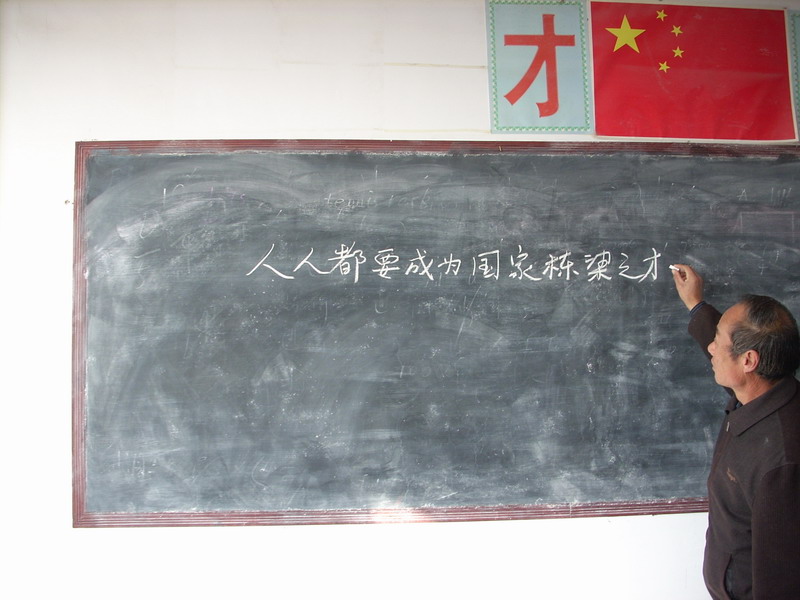 才
人人都要成为国家栋梁之才